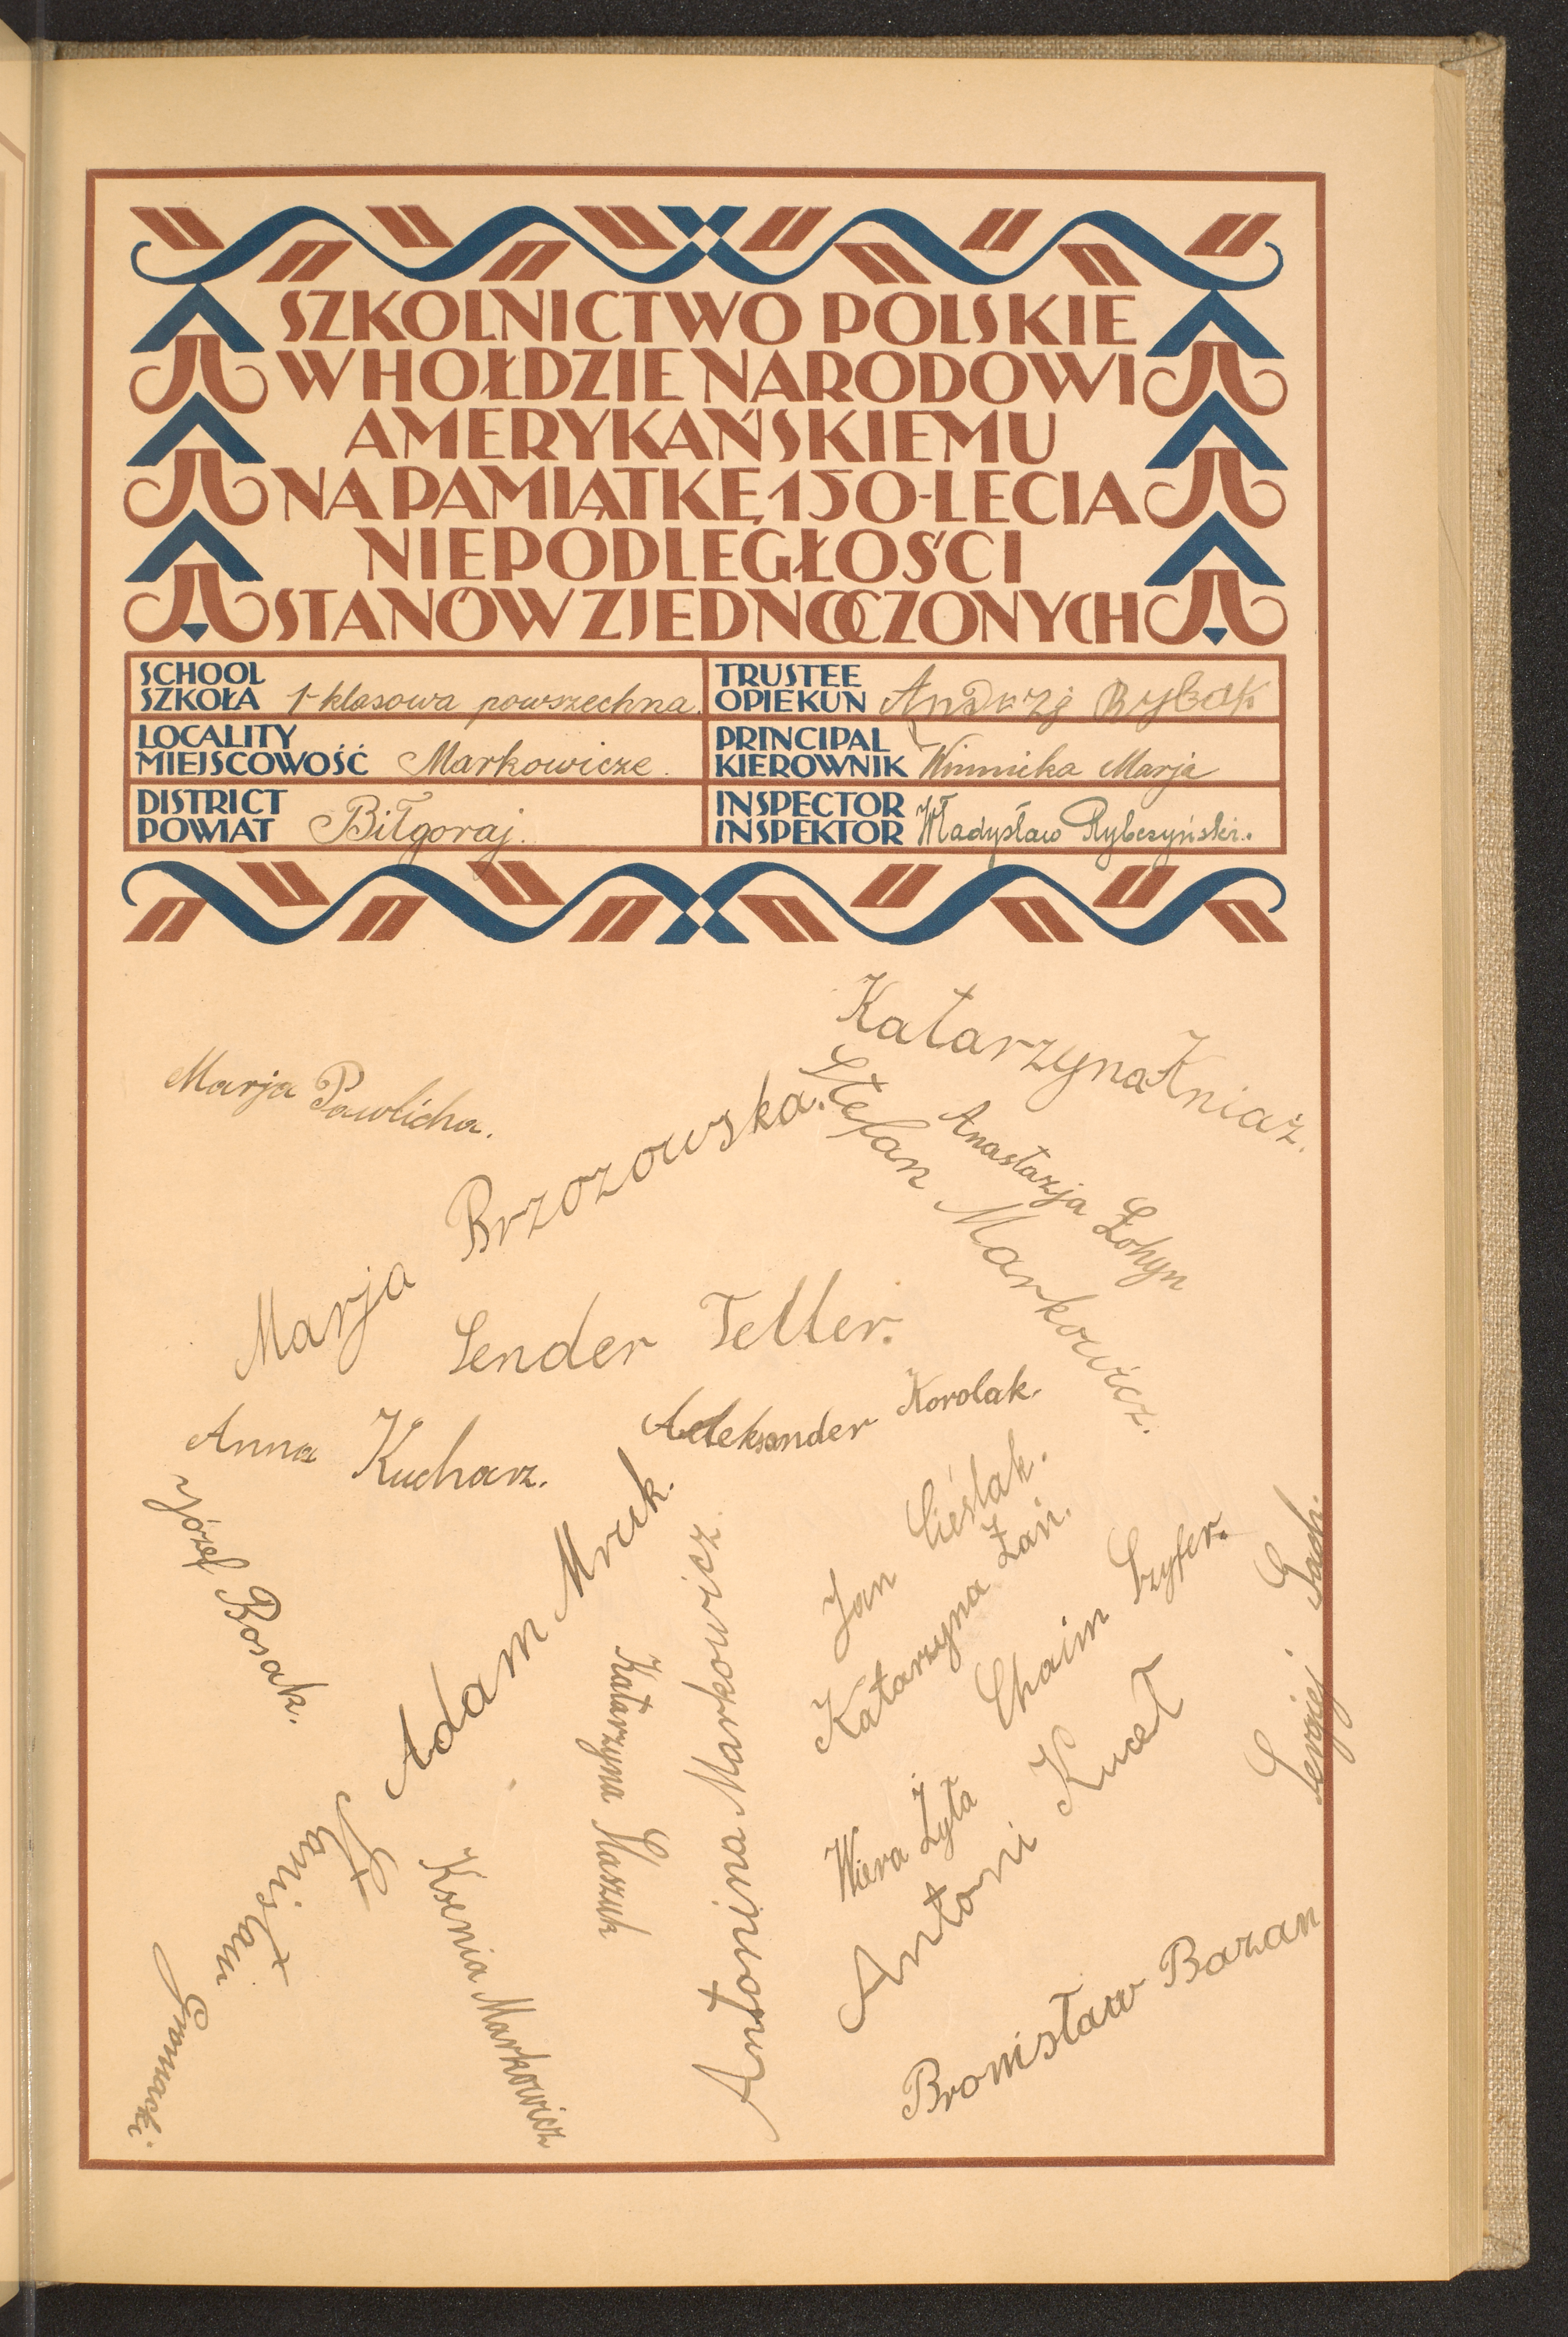 SZKOLNICTWO POLSKIE
W HOŁDZIE NARODOWI
AMERYKAŃSKIEMU
NA PAMIĄTKĘ 150-LECIA
NIEPODLEGŁOŚCI
STANÓW ZJEDNOCZONYCH
SCHOOL
SZKOŁA 1-klasowa powszechna.
TRUSTEE
OPIEKUN Andrzj Rybak
LOCALITY
MIEJSCOWOŚĆ Markowicze.
PRINCIPAL
KIEROWNIK Winnicka Marja
DISTRICT
POWIAT Biłgoraj.
INSPECTOR
INSPEKTOR Władysław Rybczyński.
Katarzyna Kniaź.
Marja Pawlicha.
Stefan Markowicz.
Anastazja Łohyn
Marja Brzozowska.
Sender Teller.
Aleksander Korolak.
Anna Kucharz.
Józef Bosak.
Adam Mruk.
Jan Cieślak.
Katarzyna Żań.
Chaim Szyfer.
Sergiej Sach.
Katarzyna Staszuk
Antonina Markowicz.
Wiera Żyła
Antoni Kuceł
Stanisław
Ksenia Markowicz
Bronisław Bazan